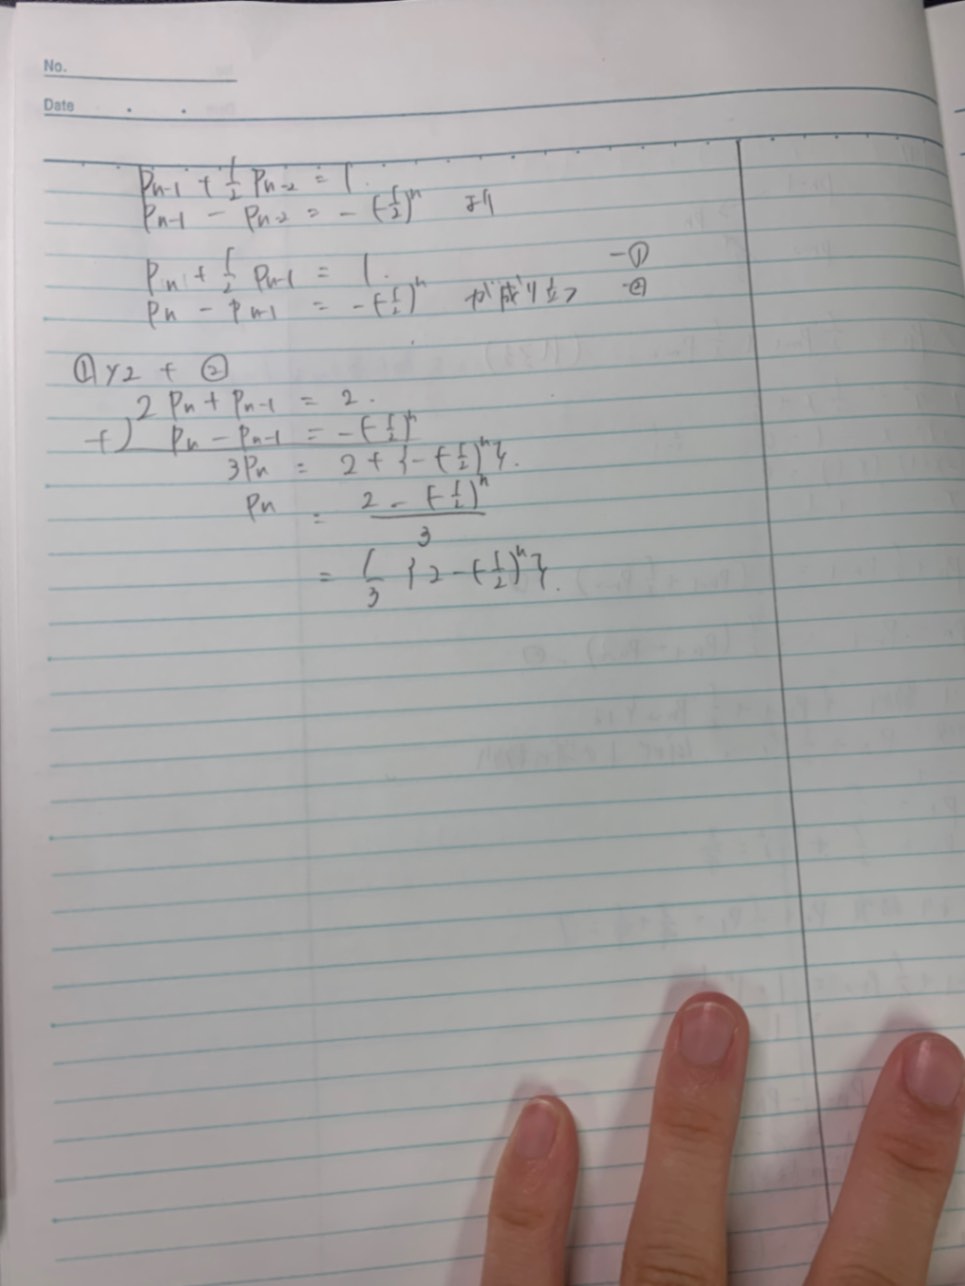 No.
Date . .
Pn-1 + 1/2 Pn-2 = 1.
Pn-1 - Pn-2 = -(-1/2)^n より
Pn + 1/2 Pn-1 = 1. -①
Pn - Pn-1 = -(-1/2)^n が成り立つ -②
①×2 + ②
2Pn + Pn-1 = 2.
+) Pn - Pn-1 = -(-1/2)^n
3Pn = 2 + {-(-1/2)^n}.
Pn = (2 - (-1/2)^n)/3
= 1/3 {2 - (-1/2)^n}.